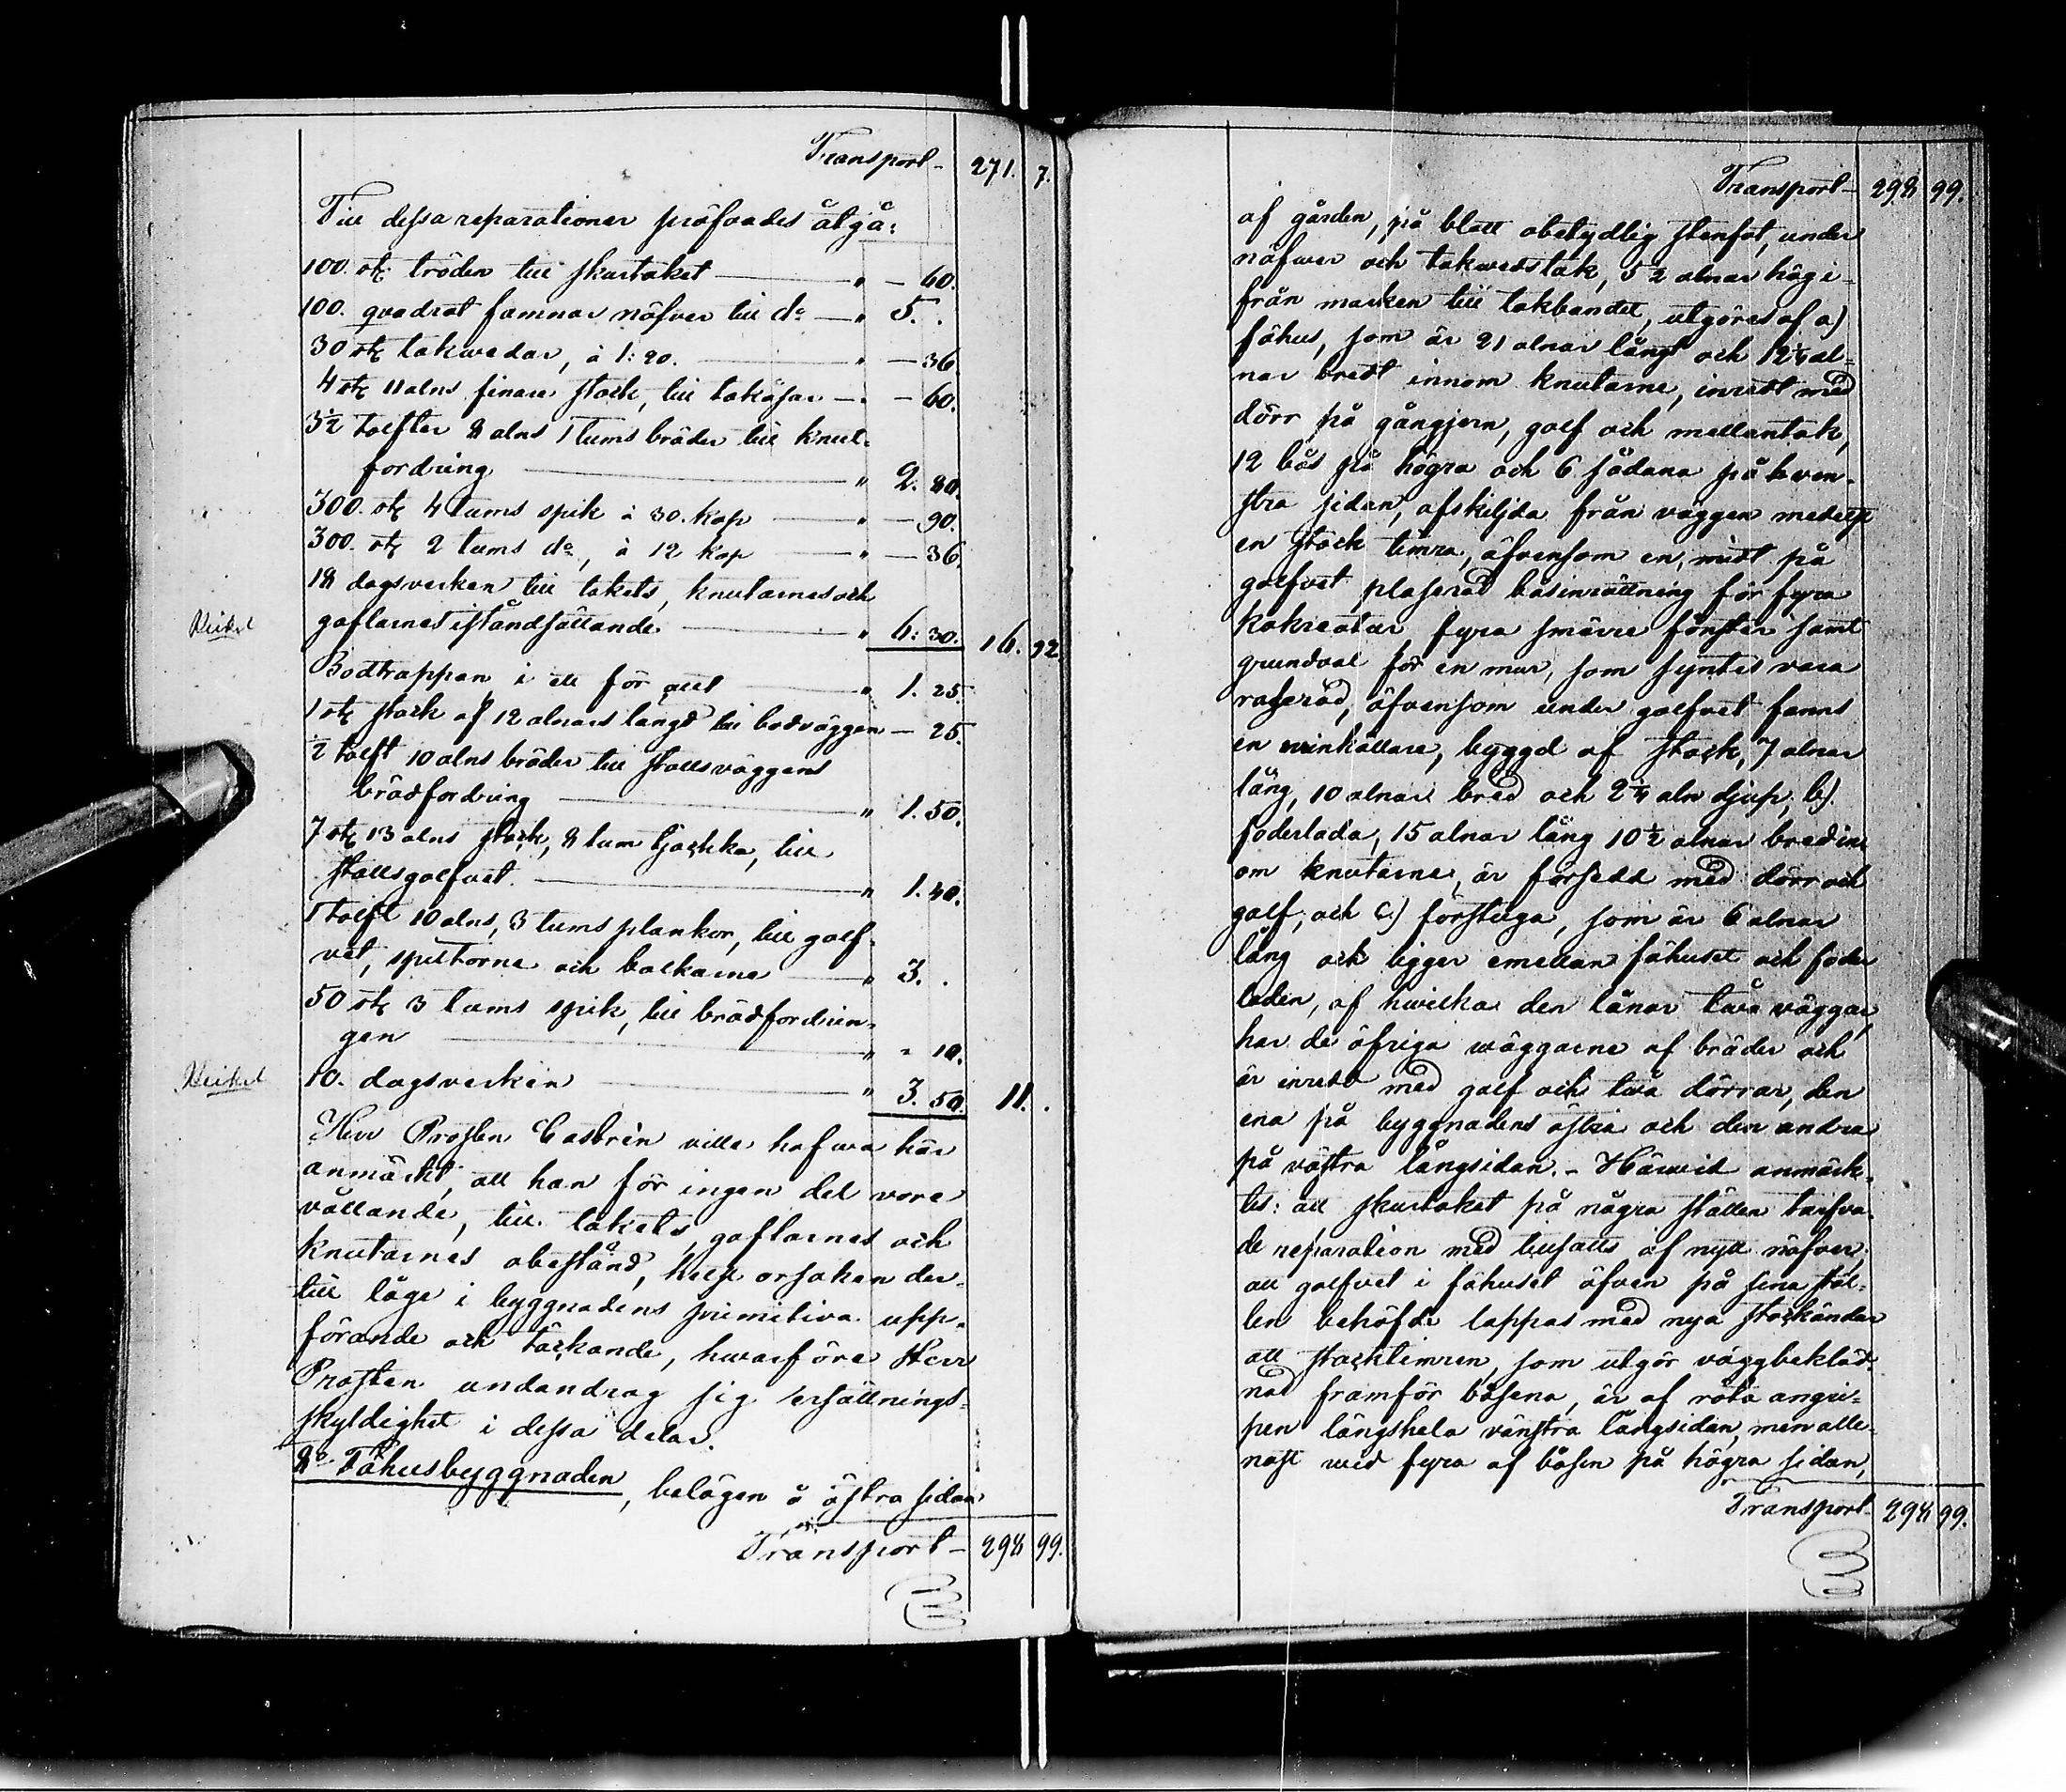 Transport - 271. 7.
Till dessa reparationer pröfvades åtgå:
100. st. tröden till skurtaket " - 60.
100. qvadrat famnar näfver till do " 5. .
30 st. takvedar, à 1: 20. " - 36.
4 st. 11 alns finare stock, till takåsar - - 60.
3½ tolfter 8 alns 1 tums bräder till knut-
fordring " 2. 80.
300. st. 4 tums spik à 30. kop " - 90.
300. st. 2 tums do, à 12 kop " - 36.
18 dagsverken till takets, knutarnes och
gaflarnes iståndsättande " 6: 30. 16. 92.
Bodtrappan i ett för allt " 1. 25.
1 st. stock af 12 alnars längd till bodväggen - 25.
½ tolft 10 alns bräder till stallsväggens
brädfordring " 1. 50.
7 st. 13 alns stock, 8 tum tjocka, till
stallsgolfvet. " 1. 40.
1 tolft 10 alns, 3 tums plankor, till golf-
vet, spiltorna och balkarne " 3. .
50 st. 3 tums spik, till brädfordrin-
gen " - 10.
10. dagsverken " 3. 50. 11. .
Herr Prosten Castrén ville hafwa här
anmärkt, att han för ingen del vore
vållande, till takets, gaflarnes och
knutarnes obestånd, helst orsaken der-
till låge i byggnadens primitiva upp-
förande och täckande, hwarföre Herr
Prosten undandrog sig ersättnings-
skyldighet i dessa delar.
8o Fähusbyggnaden, belägen å östra sidan
Transport - 298 99.
Transport - 298 99.
af gården, på blott obetydlig stenfot, under
näfwer och takwedstak, 5½ alnar hög i-
från marken till takbandet, utgöres af a)
fähus, som är 21 alnar långt och 12¼ al-
nar bredt innom knutarne, inredt med
dörr på gångjern, golf och mellantak,
12 bås på högra och 6 sådana på ven-
stra sidan, afskiljda från väggen medelst
en stock timra, äfvensom en, midt på
golfvet plaserad båsinrättning för fyra
kokreatur, fyra smärre fönster samt
grundval för en mur, som syntes vara
raserad, äfvensom under golfvet fanns
en urinkällare, byggd af stock, 7 alnar
lång, 10 alnar bred och 2¼ aln djup, b).
foderlada, 15 alnar lång 10½ alnar bred in-
om knutarne, är försedd med dörr och
golf, och c.) förstuga, som är 6 alnar
lång och ligger emellan fähuset och foder
ladan, af hwilka den lånar twå väggar,
har de öfriga wäggarne af bräder och
är inredd med golf och twå dörrar, den
ena på byggnadens östra och den andra
på västra långsidan. - Härwid anmärk-
tes: att skurtaket på några ställen tarfva-
de reparation med tillsatts af nytt näfver,
att golfvet i fähuset äfven på sina stäl-
len behöfde lappas med nya stockändar
att stocktimren, som utgör väggbekläd-
nad framför båsena, är af röta angri-
pen längshela vänstra långsidan, men alle-
nast wid fyra af båsen på högra sidan,
Transport - 298 99.